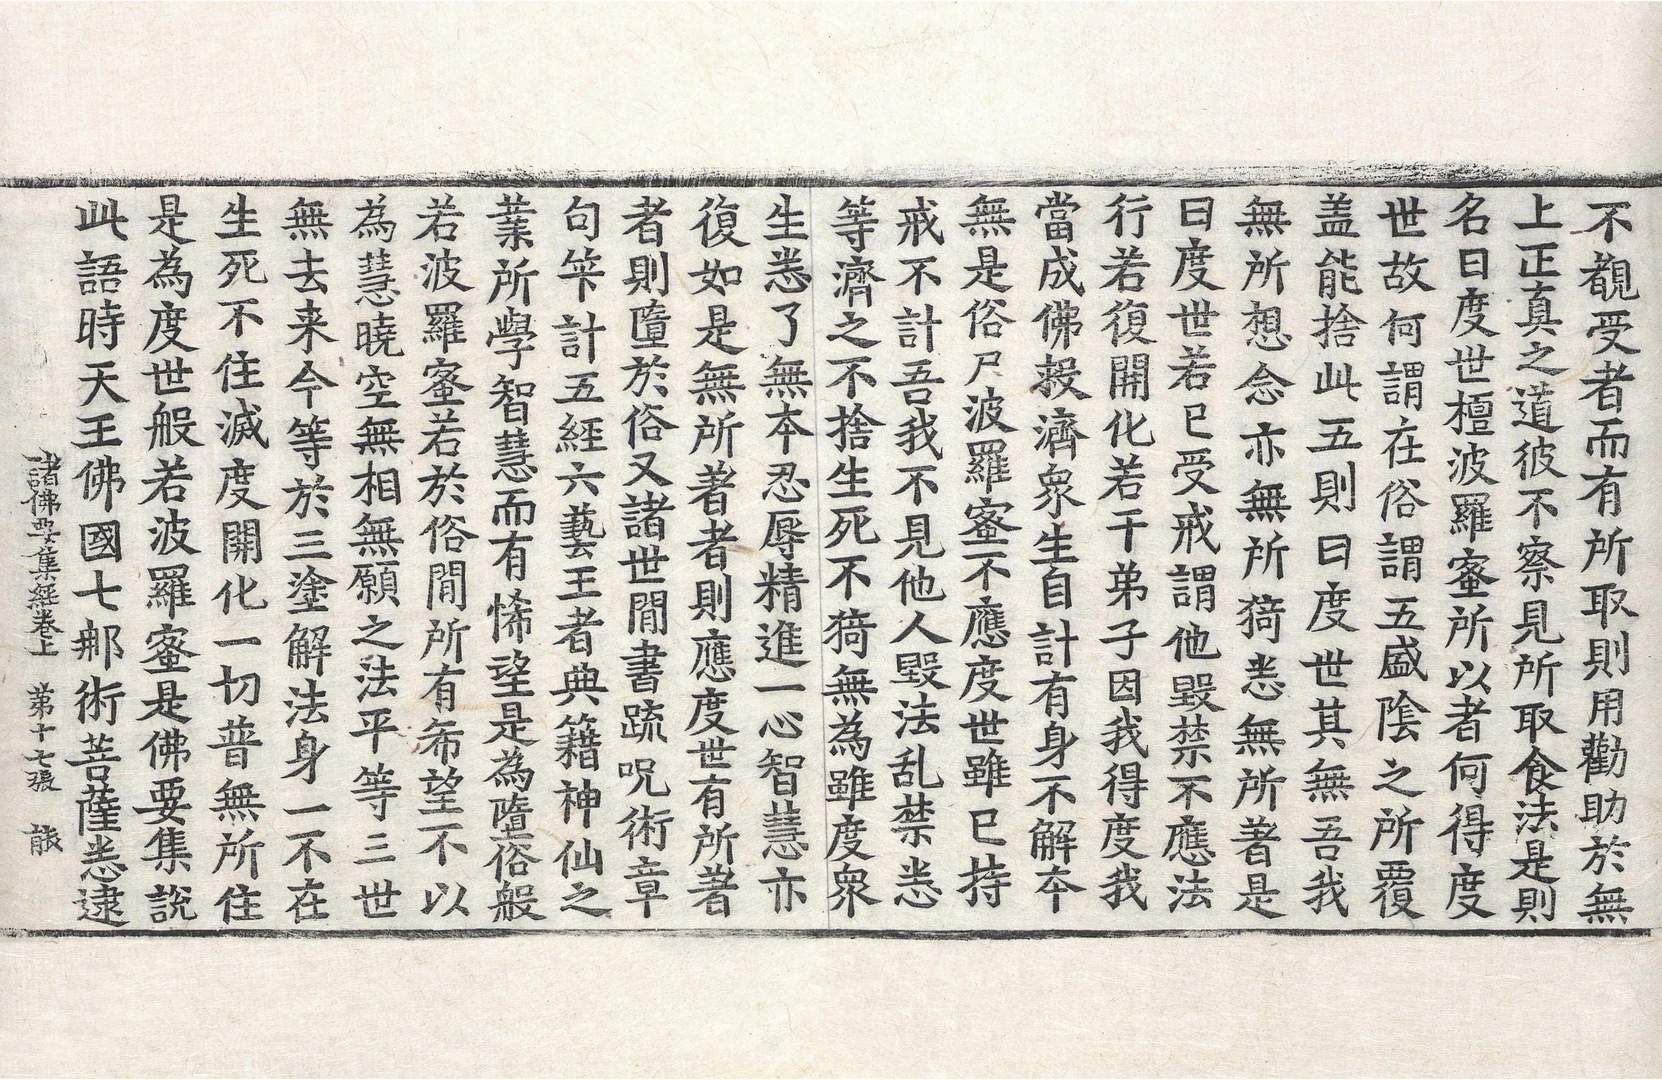 不覩受者而有所取則用勸助於無
上正真之道彼不察見所取食法是則
名曰度世檀波羅蜜所以者何得度
世故何謂在俗謂五盛陰之所覆
盖能捨此五則曰度世其無吾我
無所想念亦無所猗悉無所著是
曰度世若已受戒謂他毀禁不應法
行若復開化若干弟子因我得度我
當成佛救濟衆生自計有身不解本
無是俗尸波羅蜜不應度世雖已持
戒不計吾我不見他人毀法乱禁悉
等濟之不捨生死不猗無為雖度衆
生悉了無本忍辱精進一心智慧亦
復如是無所著者則應度世有所著
者則墮於俗又諸世間書䟽呪術章
句筭計五經六藝王者典籍神仙之
業所學智慧而有悕望是為墮俗般
若波羅蜜若於俗間所有希望不以
為慧曉空無相無願之法平等三世
無去来今等於三塗解法身一不在
生死不住滅度開化一切普無所住
是為度世般若波羅蜜是佛要集說
此語時天王佛國七那術菩薩悉逮
諸佛要集經卷上 第十七張